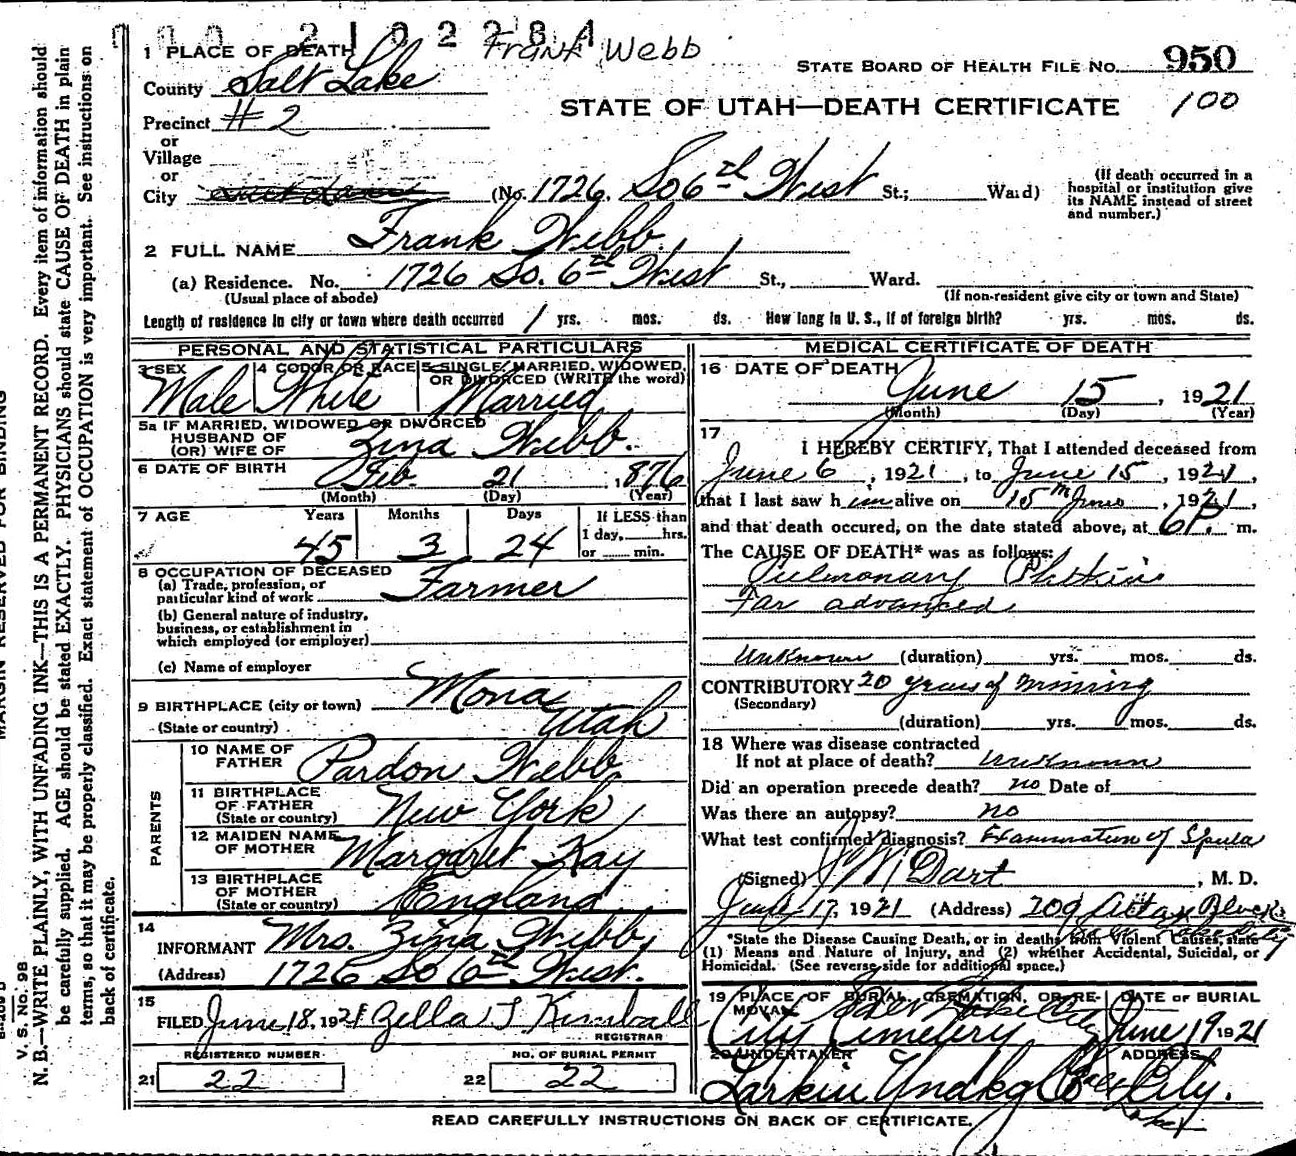 210228A
Frank Webb
1 PLACE OF DEATH
County Salt Lake
STATE BOARD OF HEALTH FILE No. 950
100
STATE OF UTAH—DEATH CERTIFICATE
Precinct #2
or
Village
or
City (No. 1726. So 6th West St.; Ward)
(If death occurred in a
hospital or institution give
its NAME instead of street
and number.)
2 FULL NAME Frank Webb.
(a) Residence. No. 1726 So. 6th West St., Ward.
(Usual place of abode) (If non-resident give city or town and State)
Length of residence in city or town where death occurred 1 yrs. mos. ds. How long in U. S., if of foreign birth? yrs. mos. ds.
PERSONAL AND STATISTICAL PARTICULARS
3 SEX 4 COLOR OR RACE 5 SINGLE, MARRIED, WIDOWED,
OR DIVORCED (WRITE the word)
Male White Married
5a IF MARRIED, WIDOWED OR DIVORCED
HUSBAND OF
(OR) WIFE OF Zina Webb.
6 DATE OF BIRTH Feb. 21, 1876
(Month) (Day) (Year)
7 AGE Years Months Days If LESS than
1 day, hrs.
or min.
45 3 24
8 OCCUPATION OF DECEASED
(a) Trade, profession, or
particular kind of work Farmer
(b) General nature of industry,
business, or establishment in
which employed (or employer)
(c) Name of employer
9 BIRTHPLACE (city or town) Mona
(State or country) Utah
PARENTS
10 NAME OF
FATHER Pardon Webb
11 BIRTHPLACE
OF FATHER
(State or country) New York
12 MAIDEN NAME
OF MOTHER Margaret Kay
13 BIRTHPLACE
OF MOTHER
(State or country) England
14
INFORMANT Mrs. Zina Webb
(Address) 1726 So 6th West.
15
FILED June 18, 1921 Zella T Kimball
REGISTRAR
REGISTERED NUMBER NO. OF BURIAL PERMIT
21 22 22 22
MEDICAL CERTIFICATE OF DEATH
16 DATE OF DEATH June 15, 1921
(Month) (Day) (Year)
17
I HEREBY CERTIFY, That I attended deceased from
June 6, 1921, to June 15, 1921,
that I last saw him alive on 15th June, 1921,
and that death occured, on the date stated above, at 6P. m.
The CAUSE OF DEATH* was as follows:
Pulmonary Phthisis
Far advanced.
Unknown (duration) yrs. mos. ds.
CONTRIBUTORY 20 years of mining
(Secondary)
(duration) yrs. mos. ds.
18 Where was disease contracted
If not at place of death? Unknown
Did an operation precede death? no Date of
Was there an autopsy? no
What test confirmed diagnosis? Examination of Sputa
(Signed) J W Dart, M. D.
June 17, 1921 (Address) 209 Atlas Block
Salt Lake City
*State the Disease Causing Death, or in deaths from Violent Causes, state
(1) Means and Nature of Injury, and (2) whether Accidental, Suicidal, or
Homicidal. (See reverse side for additional space.)
19 PLACE OF BURIAL, CREMATION, OR RE-
MOVAL DATE OF BURIAL
Salt Lake City
City Cemetery June 19 1921
20 UNDERTAKER ADDRESS
Larkin Undkg Co Salt Lake City.
READ CAREFULLY INSTRUCTIONS ON BACK OF CERTIFICATE.
MARGIN RESERVED FOR BINDING
V. S. NO. 98
N. B.—WRITE PLAINLY, WITH UNFADING INK—THIS IS A PERMANENT RECORD. Every item of information should
be carefully supplied. AGE should be stated EXACTLY. PHYSICIANS should state CAUSE OF DEATH in plain
terms, so that it may be properly classified. Exact statement of OCCUPATION is very important. See instructions on
back of certificate.